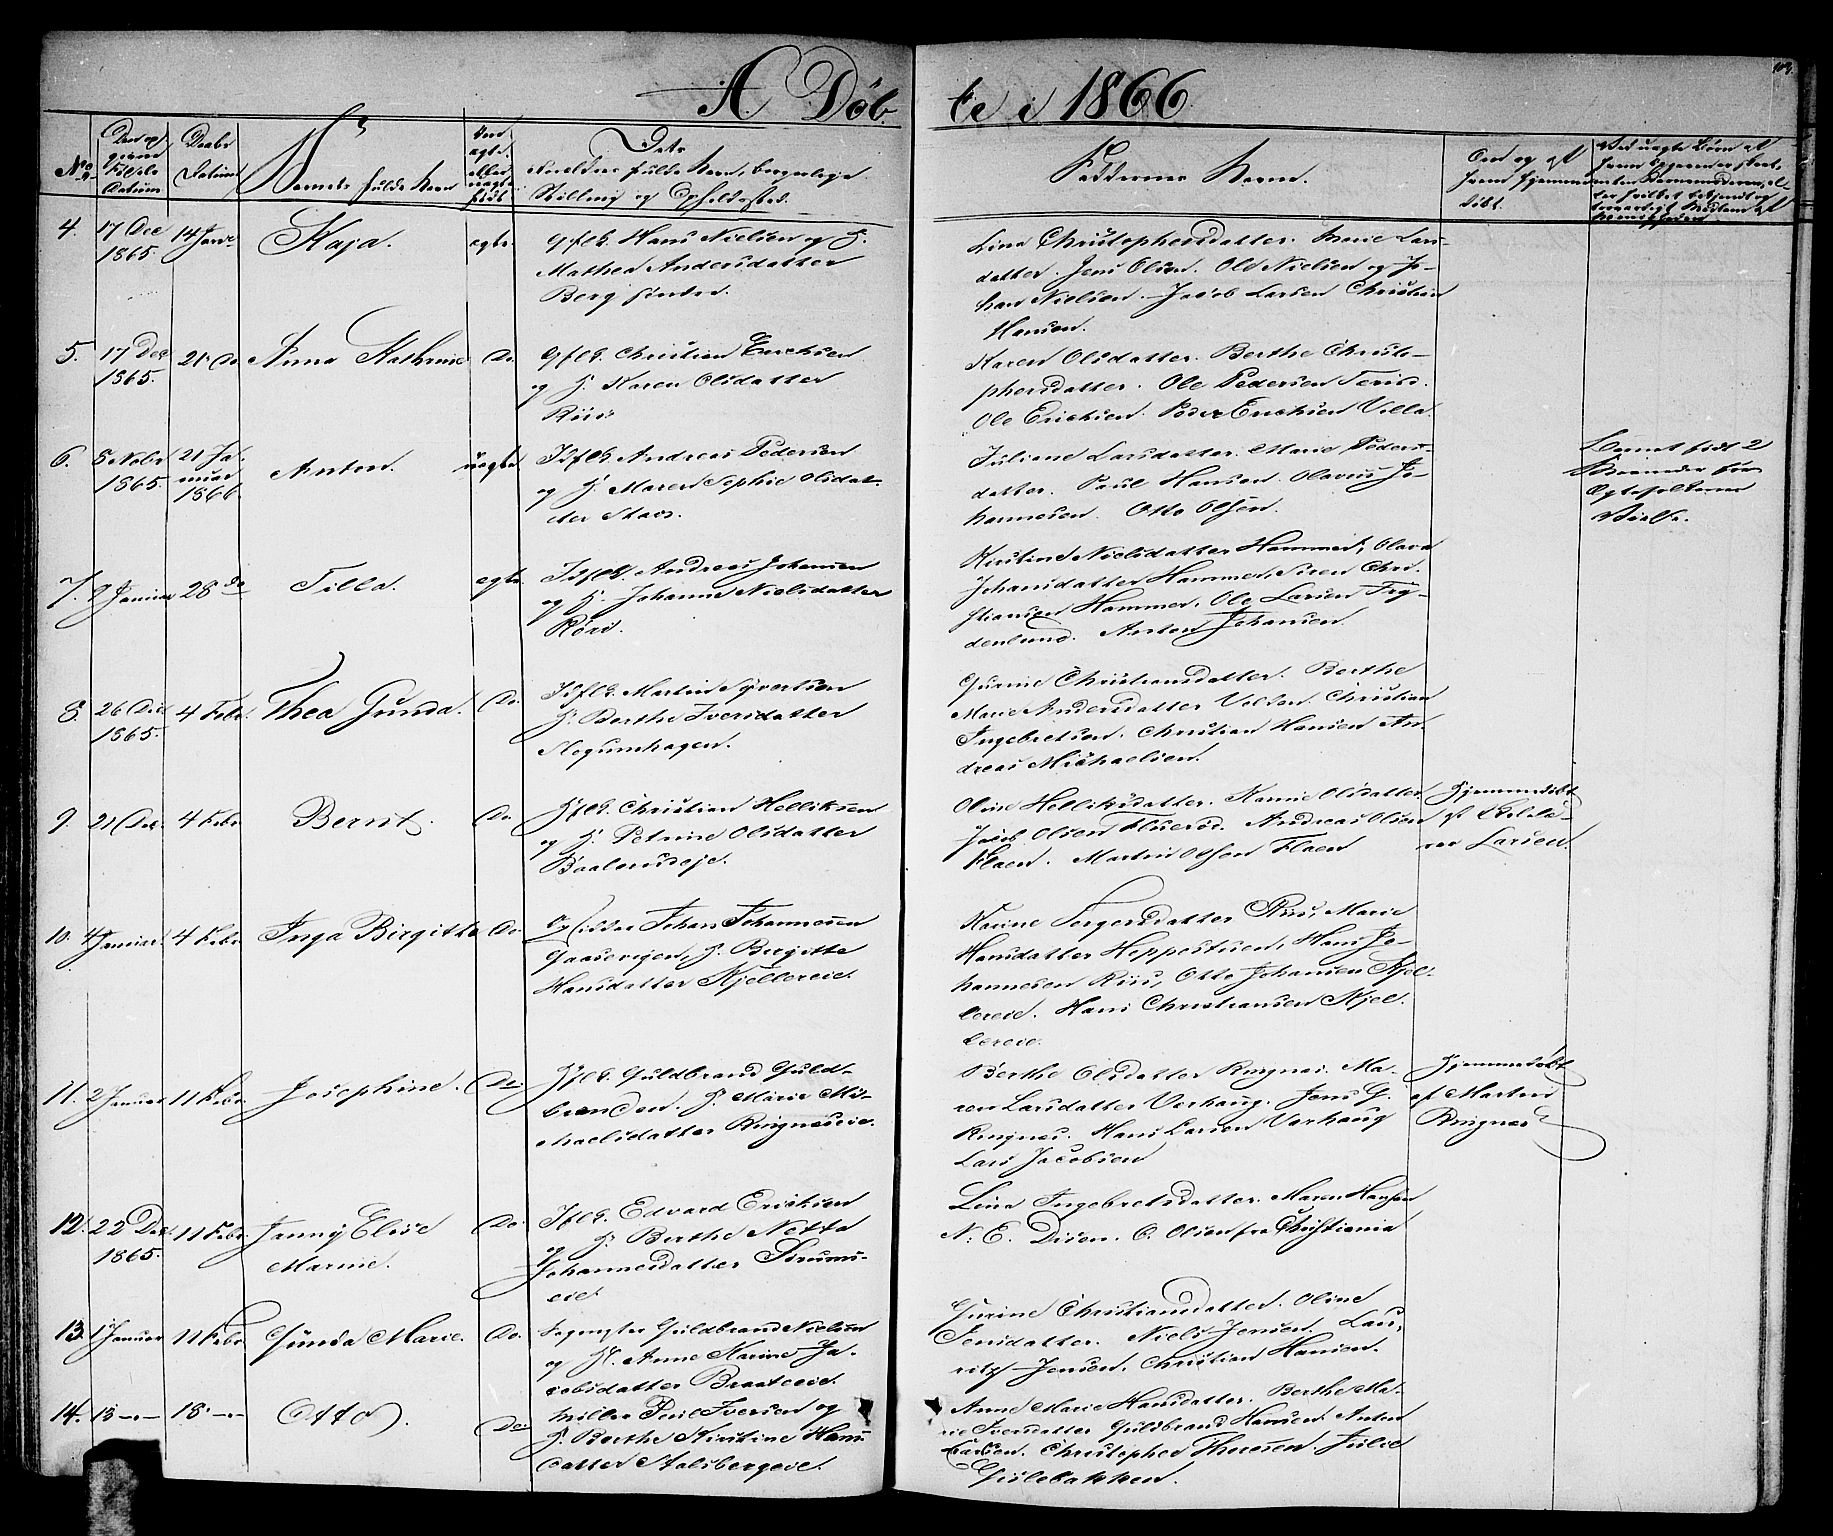 A. Døb- te i 1866.
No
Daabs
Datum
Barnets fulde Navn
Forældres fulde Navn, borgerlige
Stilling og Opholdssted.
Faddernes Navne.
4. 17 Dec 1865. 14 Janr Kaja. egte. Gfk. Hans Nielsen og H.
Mathea Andersdatter
Berg søndre.
Lina Christophersdatter. Marie Lars-
datter. Jens Olsen. Ole Nielsen og Jo-
han Nielsen. Jacob Larsen Christian
Hansen.
5. 17 Dec 1865. 21 Do Anna Kathrine Do. Gfk. Christian Erichsen
og H. Karen Olsdatter
Riis
Karen Olsdatter. Berthe Christo-
phersdatter. Ole Pedersen
Ole Erichsen. Peder Erichsen Villa.
6. 8 Novbr 1865. 21 Ja-
nuar 1866 Anton. uegte Idfk. Andreas Pedersen
og H. Maren Sophie Olsdat-
ter
Juliane Larsdatter. Marie Peders-
datter. Paul Hansen. Olavus Jo-
hannesen. Otto Olsen.
Barnet født 2
Maaneder før
Ægtefolkenes
Vielse.
7. 9 Januar 28 do Tilla. egte Idfk. Andreas Johansen
og H. Johanne Nielsdatter
Røsi.
Kristine Nielsdatter Hammer, Olava
Johansdatter Hammer, Siren Chri-
stiansen Hammer, Ole Larsen Fry-
denlund. Anton Johansen.
8. 26 Dec 1865. 4 Febr. Thea Gunda. Do. Idfk. Martin Syvertsen
H. Berthe Iversdatter
Gurine Christiansdatter. Berthe
Marie Andersdatter Christian
Ingebretsen. Christian Hansen An-
dreas Michaelsen.
9. 21 Dec. 4 Febr Bernt. Do. Christian Helliksen
og H. Petrine Olsdatter
Baalerudeje.
Oline Helliksdatter. Karine Olsdatter
Jacob Olsen Andreas Olsen
Flaen. Martin Olsen Flaen
Hjemmedøbt
af Skolelæ-
rer Larsen.
10. 4 Januar. 4 Febr Inga Birgitte Do Johan Johannesen
Gaasevigen, H. Birgitte
Hansdatter Kjellereie.
Karine Torgersdatter Riis, Marie
Hansdatter Heppestuen, Hans Jo-
hannesen Riis, Otto Johansen Kjel-
lereie. Hans Christiansen Kjel-
lereie.
11. 2 Januar 11 Febr Josephine. Do Guldbrand Guld-
brandsen. H. Marie Mi-
chaelsdatter Ringneseie.
Berthe Olsdatter Ringnes. Ma-
ren Larsdatter Verhaug. Jens G.
Ringnes. Hans Larsen Verhaug
Lars Jacobsen
Hjemmedøbt
af Martin
Ringnes
12. 22 Dec. 1865. 11 Febr. Janny Elise
Marine. Do Edvard Erichsen
og H. Berthe Netta
Johannesdatter
eie.
Lina Ingebretsdatter. Maren Hansen
N. E. Disen. C. Olsen fra Christiania
13. 1 Januar 11 Febr Gunda Marie. Do. Guldbrand Nielsen
og H. Anne Karine Ja-
cobsdatter Braateeie.
Gurine Christiansdatter. Oline
Jensdatter. Niels Jensen. Lau-
ritz Jensen. Christian Hansen.
14. 13 -.- 18 -.- Otto. Do. Møller Iversen og
H. Berthe Kirstine Hans
datter Stalsbergeie.
Anne Marie Hansdatter. Berthe Ma-
rie Iversdatter Guldbrand Hansen. Anton
Larsen. Christopher Julie